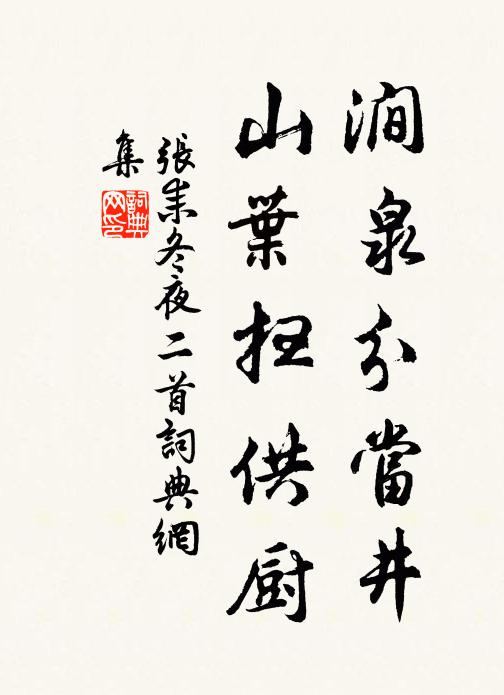 澗泉分當井
山葉掃供厨
張耒冬夜二首詞典網
集
詞典
网印